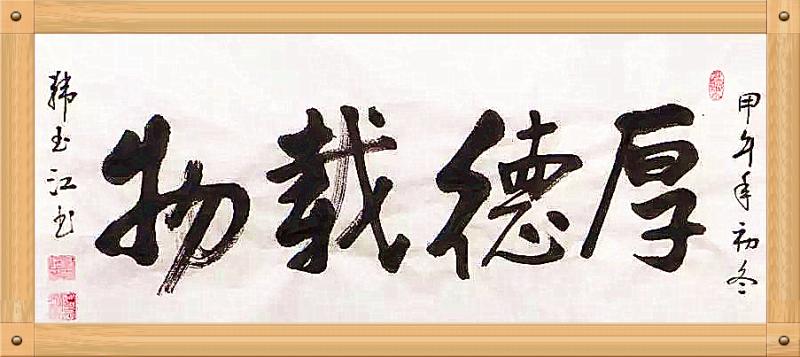 甲午年初冬
厚德載物
韩玉江书